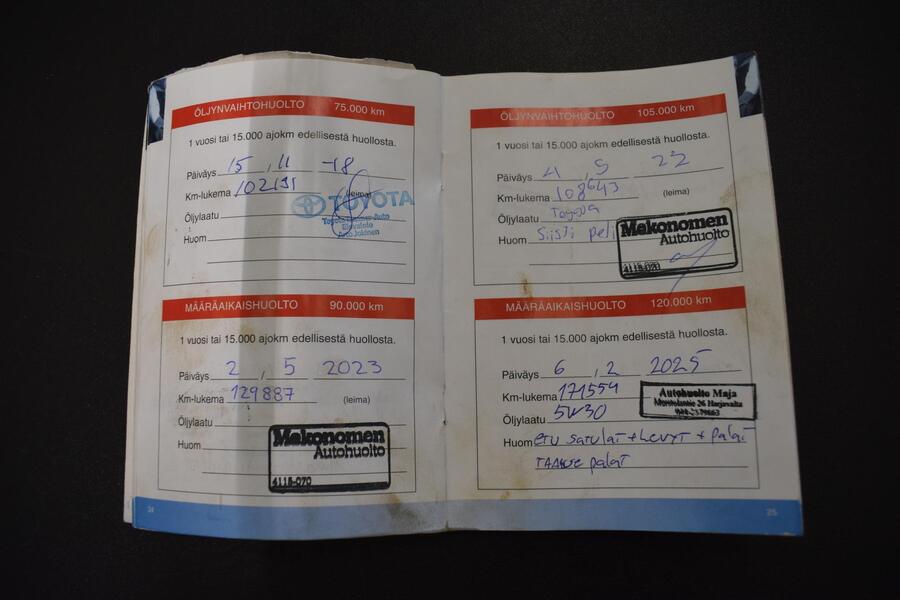 ÖLJYNVAIHTOHUOLTO 75.000 km
1 vuosi tai 15.000 ajokm edellisestä huollosta.
Päiväys 15 , 11 -18
Km-lukema 102191 (leima)
TOYOTA
Öljylaatu
Huom
MÄÄRÄAIKAISHUOLTO 90.000 km
1 vuosi tai 15.000 ajokm edellisestä huollosta.
Päiväys 2 , 5 2023
Km-lukema 129887 (leima)
Öljylaatu
Huom
Mekonomen
Autohuolto
4118-070
24
ÖLJYNVAIHTOHUOLTO 105.000 km
1 vuosi tai 15.000 ajokm edellisestä huollosta.
Päiväys 4 , 5 22
Km-lukema 108643 (leima)
Öljylaatu Toyota
Huom Siisti peli
Mekonomen
Autohuolto
4118-070
MÄÄRÄAIKAISHUOLTO 120.000 km
1 vuosi tai 15.000 ajokm edellisestä huollosta.
Päiväys 6 , 2 2025
Km-lukema 171554
Öljylaatu 5W30
Autohuolto Maja
26 Harjavalta
Huom etu satulat + Levyt + palat
TAAKSE palat
25